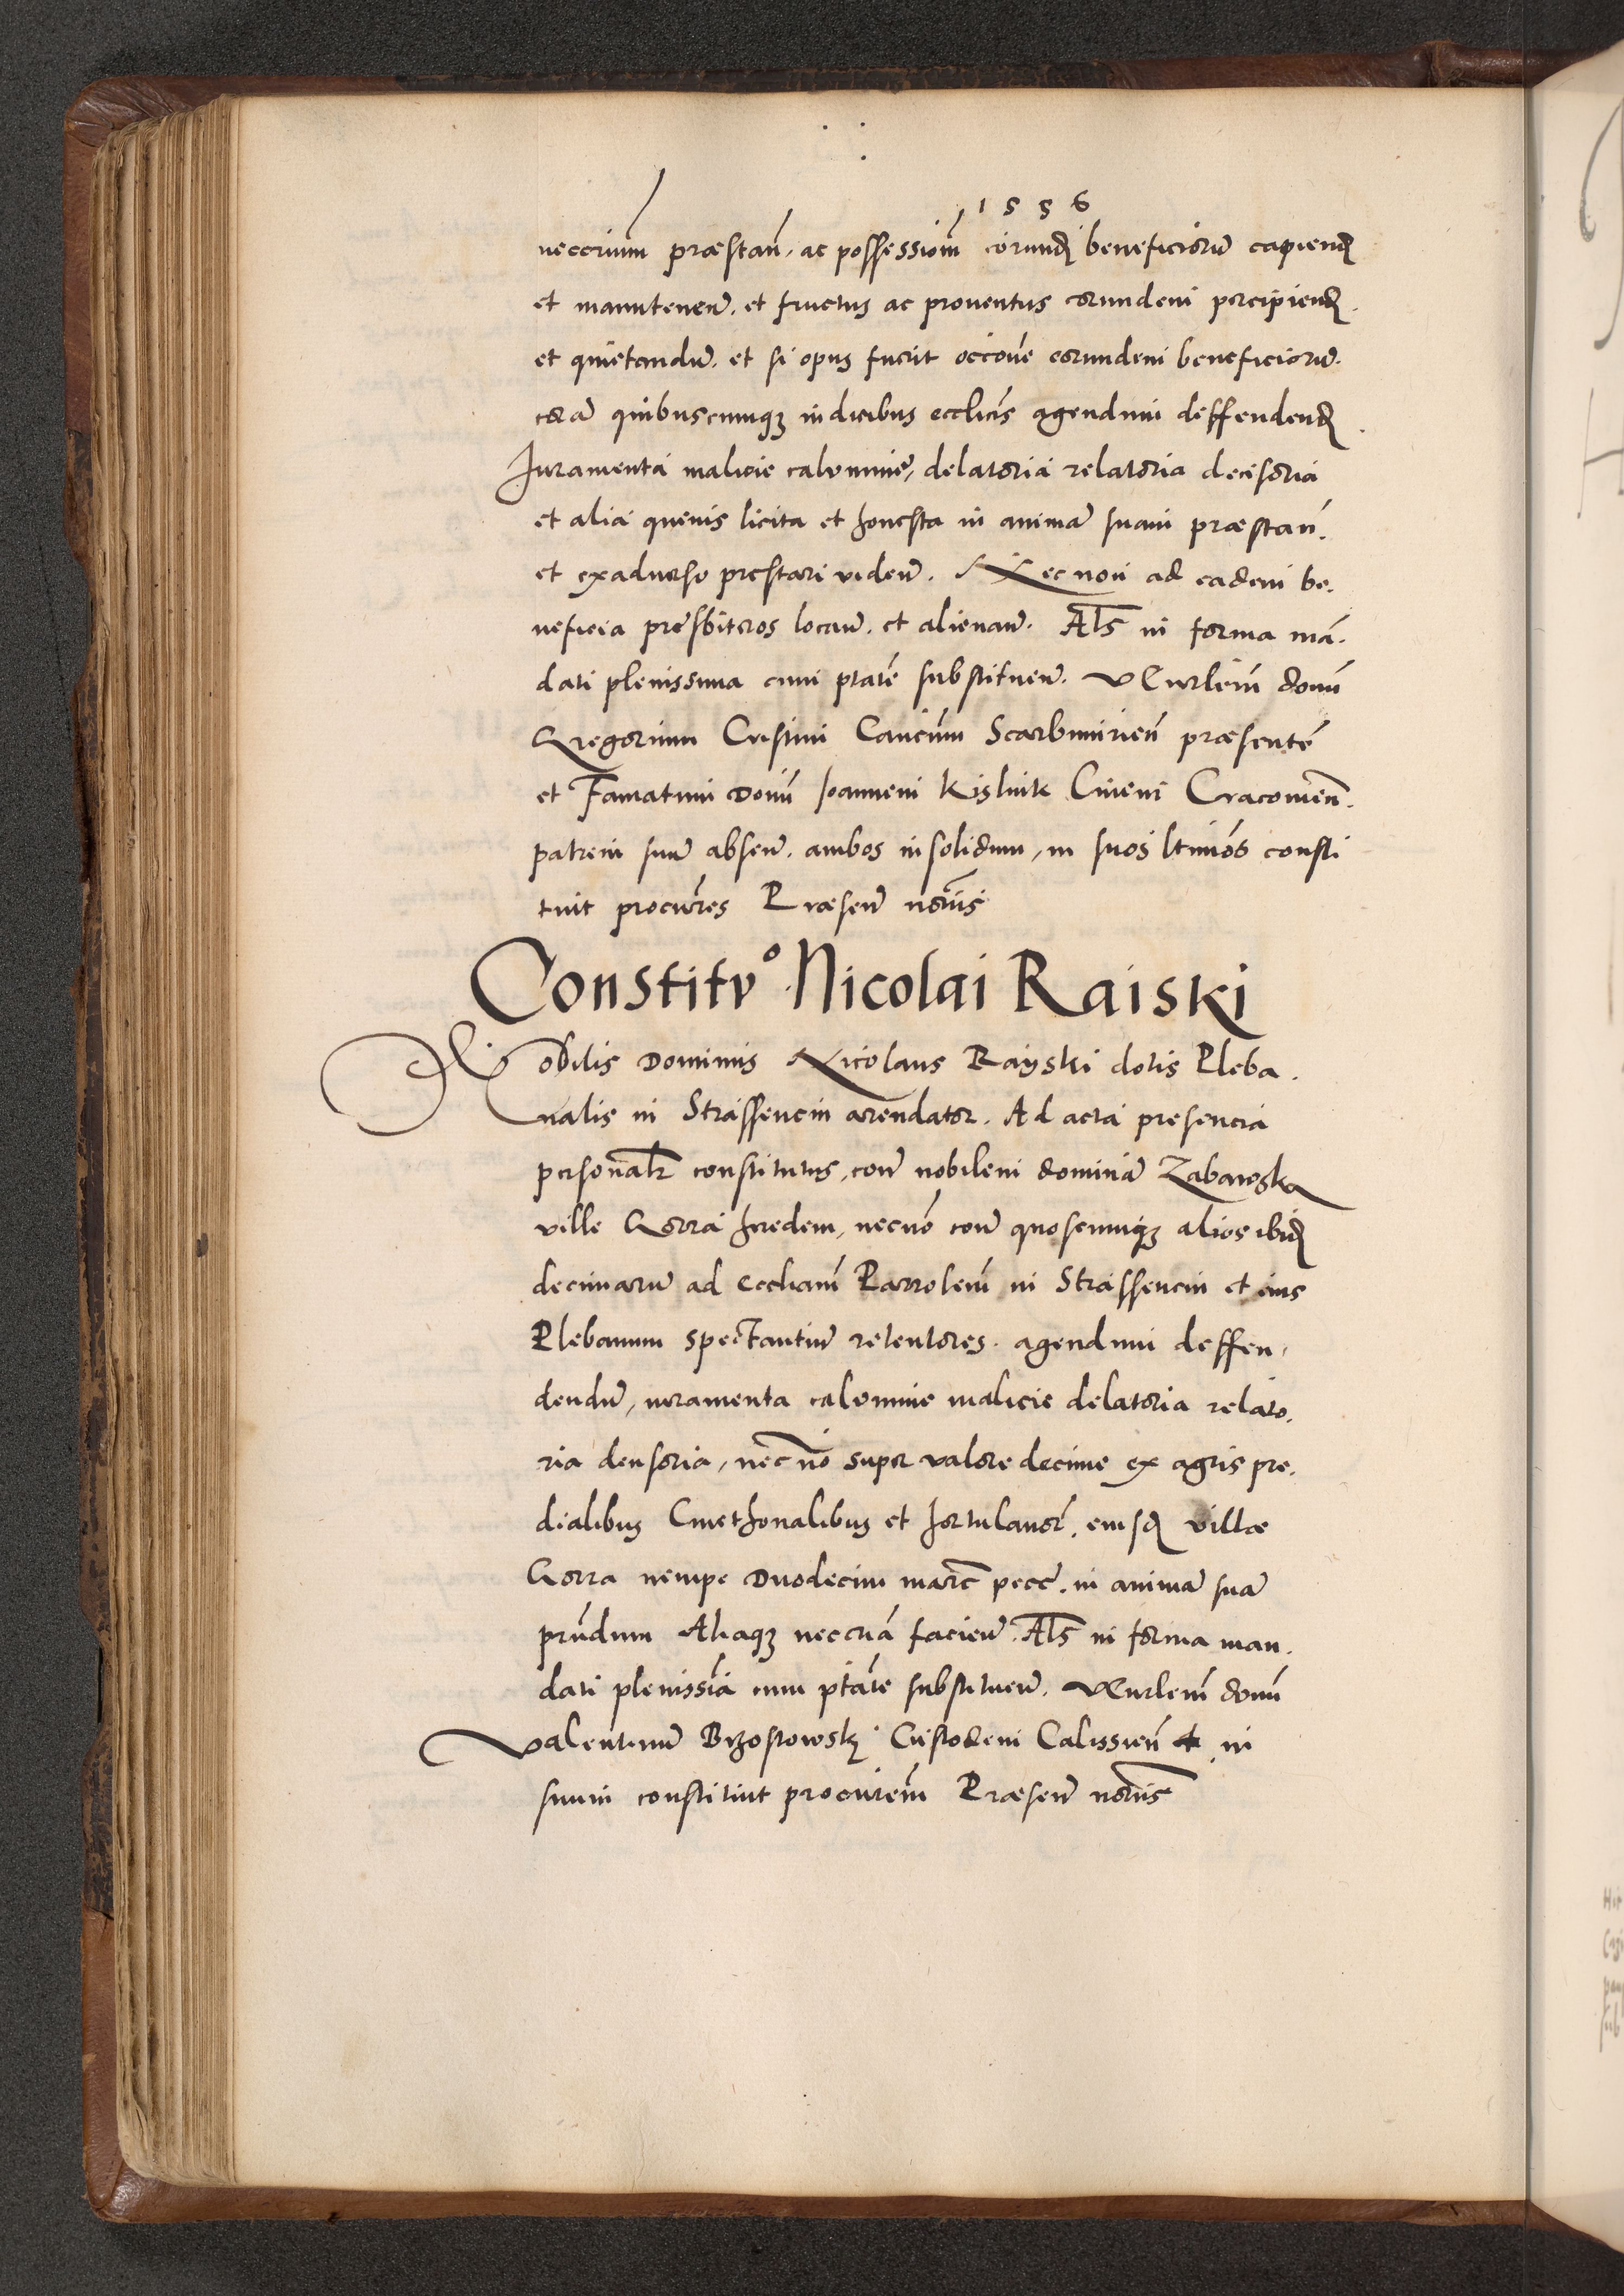 1556
neccrium præstan̄. ac possessiom̄ eorund beneficiorū capiend
et manutenen̄. et fructus ac proventus eorundem percipiend.
et quietandū. et si opus fuerit occōne eorundem beneficiorū.
corā quibuscumqȝ iudicibus ecclicis agendum deffendend.
Iuramenta malicie calumnie, delatoria relatoria decisoria
et alia quevis licita et honesta in animā suam præstan̄.
et exadverso prestari viden̄. Nec non ad eadem be.
neficia presbiteros locan̄. et alienan̄. Als in forma mā.
dati plenissima cum ptatē substituen̄. Verlem̄ donū
Gregorium Cristini Canicum Scarbimirien̄ præsentē
et Famatum Donū Joannem Kislink Civem Cracovien̄.
patrem suū absen̄. ambos in solidum, in suos ltimos consti
tuit procurēs Præsen̄ notriis
Constitvº Nicolai Raiski
Nobilis Dominus Nicolaus Rayski dotis Pleba.
nalis in Strassencin arendator. Ad acta presencia
personalr constitutus, con̄ nobilem dominā Zabawska
ville Gorra heredem, necnō con̄ quoscumqȝ alios ibid
decimarū ad eccliam̄ Parrolem̄ in Strassencin et eius
Plebanum spectantiū retentores. agendum deffen,
dendū, iuramenta calumnie malicie delatoria relato.
ria decisoria, nec nō super valore decime ex agris pre.
dialibus Cmethonalibus et hortulanor. eiusd villæ
Gorra nempe Duodecim marc pecc. in animā suā
prn̄dum Aliaqȝ neccriā facien̄. Als in forma man.
dati plenissīa cum ptatē substituen̄. Verlem̄ donū
Valentinū Brzostowsky Custodem Calissien̄ in
suum constituit procurem̄ Præsen̄ notriis